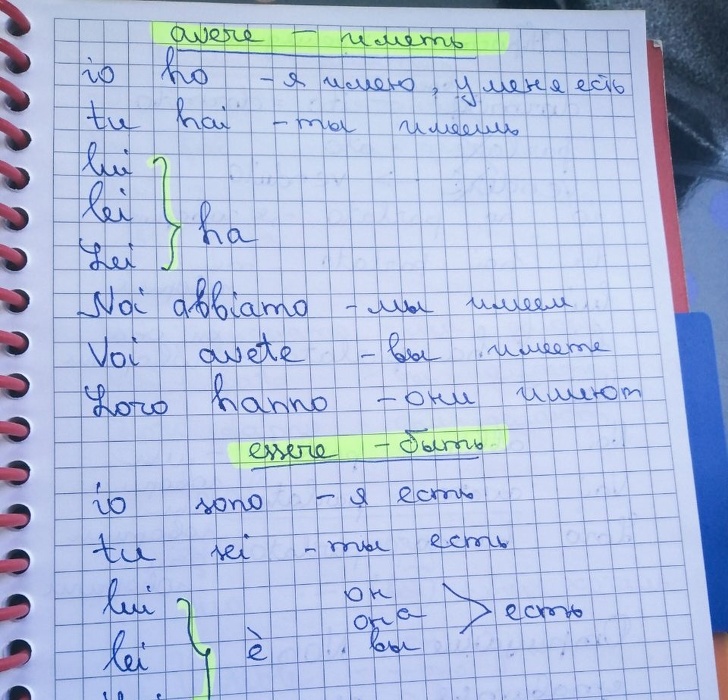 avere - иметь
io ho - я имею, у меня есть
tu hai - ты имеешь
lui
lei
Lei
ha
Noi abbiamo - мы имеем
Voi avete - вы имеете
Loro hanno - они имеют
essere - быть
io sono - я есть
tu sei - ты есть
lui он
она есть
lei è вы